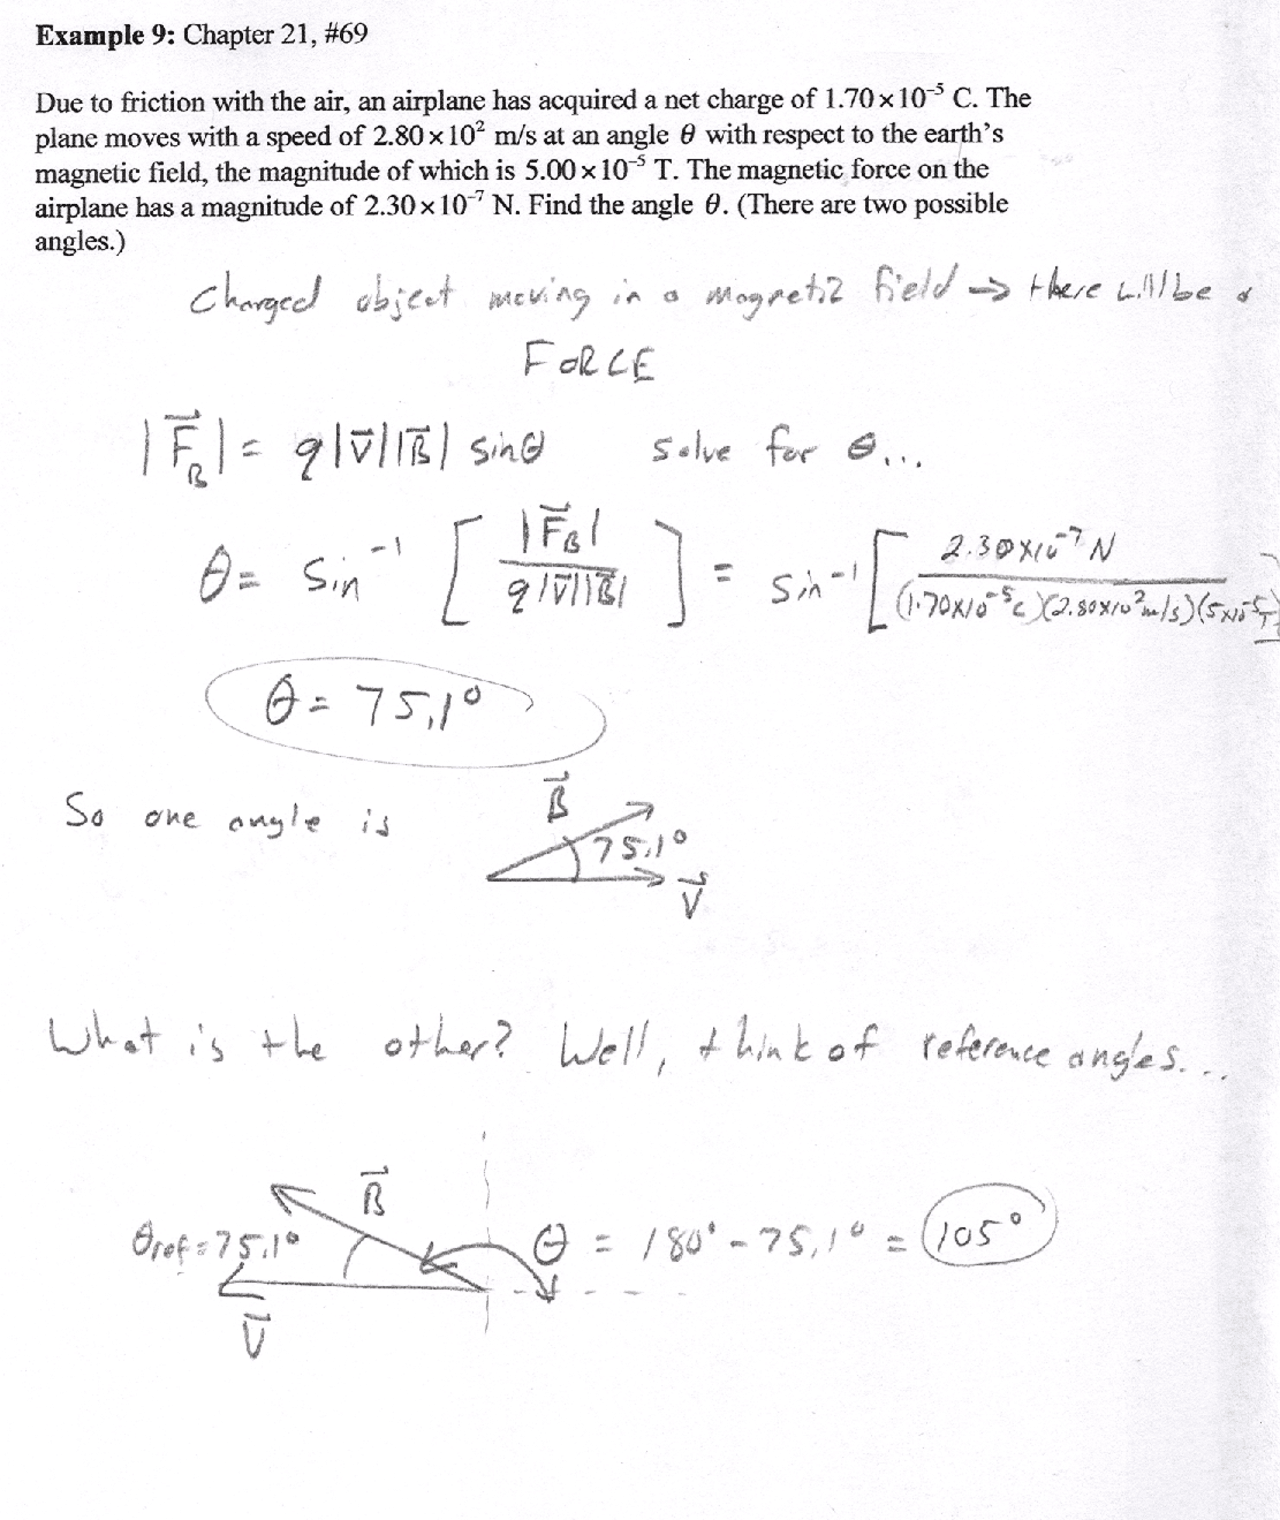 Example 9: Chapter 21, #69
Due to friction with the air, an airplane has acquired a net charge of 1.70×10⁻⁵ C. The
plane moves with a speed of 2.80×10² m/s at an angle θ with respect to the earth's
magnetic field, the magnitude of which is 5.00×10⁻⁵ T. The magnetic force on the
airplane has a magnitude of 2.30×10⁻⁷ N. Find the angle θ. (There are two possible
angles.)
Charged object moving in a magnetic field → there will be a
FORCE
|F⃗_B| = q|v⃗||B⃗| sinθ solve for θ...
θ = sin⁻¹ [ |F⃗_B| / q|v⃗||B⃗| ] = sin⁻¹ [ 2.30×10⁻⁷ N / (1.70×10⁻⁵ C)(2.80×10² m/s)(5×10⁻⁵ T) ]
θ = 75.1°
So one angle is
B⃗
75.1°
V⃗
What is the other? Well, think of reference angles...
B⃗
θref = 75.1° θ = 180° - 75.1° = 105°
V⃗